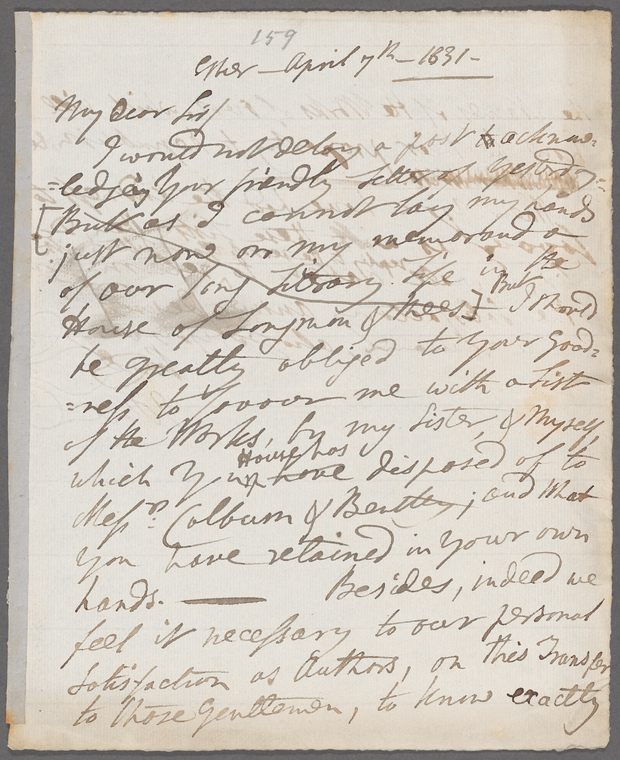 159
Esher - April 7th - 1831 -
My Dear Sir/
I would not delay a post to acknow-
=ledging Your friendly letter of yesterday =
[But as I cannot lay my hands
just now on my memoranda
of our long Literary Life in the
House of Longman & Rees] But I should
be greatly obliged to Your Good=
=ness to favour me with a list
of the Works, by my Sister & Myself,
which Your House has have disposed of to
Messrs Colburn & Bentley; and What
you have retained in Your own
hands. — Besides, indeed we
feel it necessary to our personal
satisfaction as Authors, on this Transfer
to those Gentlemen, to know exactly